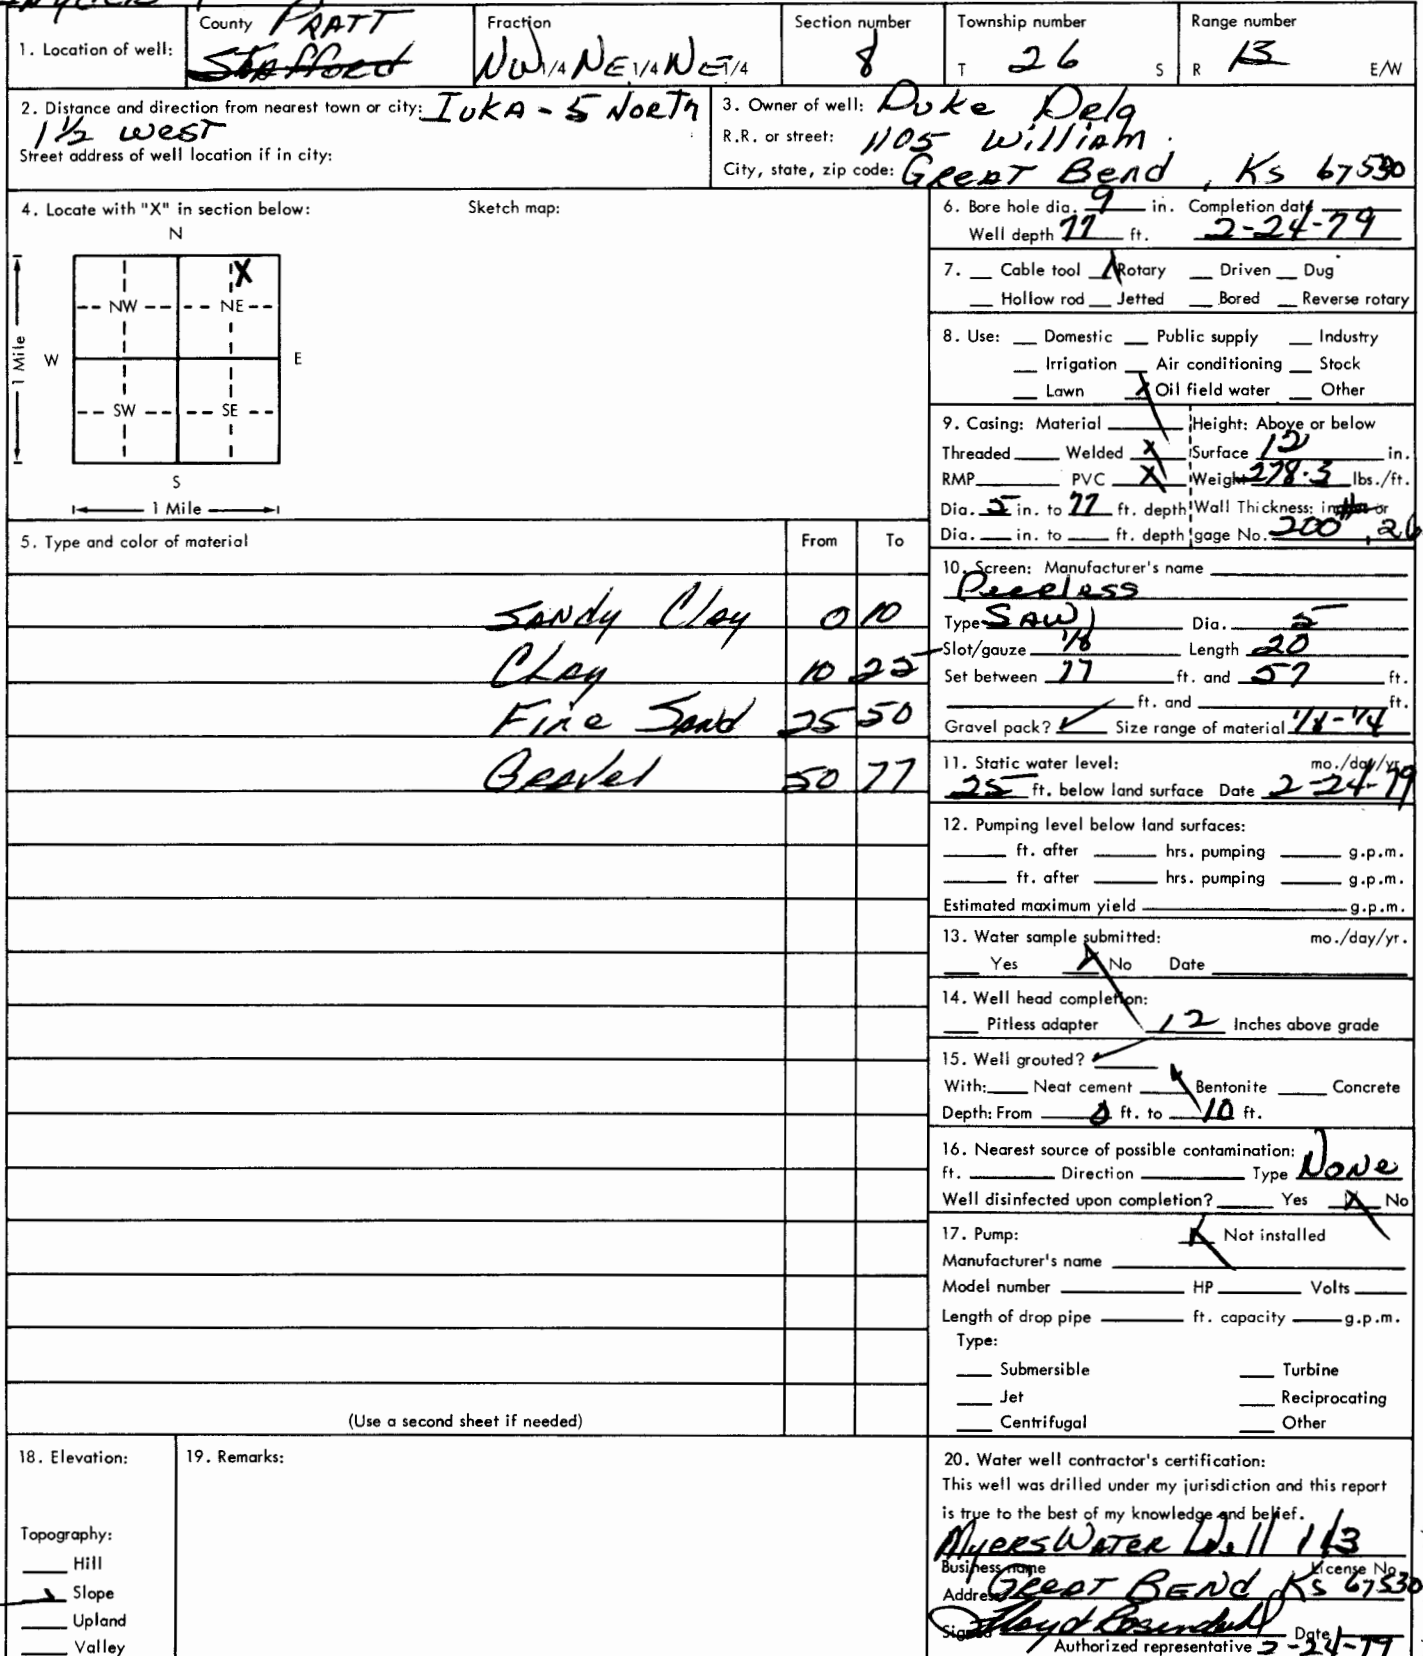 County PRATT
Fraction
Section number
Township number
Range number
1. Location of well:
Stafford
NW 1/4 NE 1/4 NE 1/4
8
T 26 S
R 13 E/W
2. Distance and direction from nearest town or city: IUKA - 5 North
1 1/2 west
Street address of well location if in city:
3. Owner of well: Duke Delg
R.R. or street: 1105 William
City, state, zip code: Great Bend, Ks 67530
4. Locate with "X" in section below:
Sketch map:
N
X
NW NE
W E
1 Mile
SW SE
S
1 Mile
5. Type and color of material From To
Sandy Clay 0 10
Clay 10 25
Fine Sand 25 50
Gravel 50 77
(Use a second sheet if needed)
6. Bore hole dia. 9 in. Completion date
Well depth 77 ft. 2-24-79
7. Cable tool X Rotary Driven Dug
Hollow rod Jetted Bored Reverse rotary
8. Use: Domestic Public supply Industry
Irrigation Air conditioning Stock
Lawn X Oil field water Other
9. Casing: Material Height: Above or below
Threaded Welded X Surface 12 in.
RMP PVC X Weight 278.3 lbs./ft.
Dia. 5 in. to 77 ft. depth Wall Thickness: inches or
Dia. in. to ft. depth gage No. 200 .26
10. Screen: Manufacturer's name
Peerless
Type SAW Dia. 5
Slot/gauze 1/8 Length 20
Set between 77 ft. and 57 ft.
ft. and ft.
Gravel pack? ✓ Size range of material 1/8-1/4
11. Static water level: mo./day/yr.
25 ft. below land surface Date 2-24-79
12. Pumping level below land surfaces:
ft. after hrs. pumping g.p.m.
ft. after hrs. pumping g.p.m.
Estimated maximum yield g.p.m.
13. Water sample submitted: mo./day/yr.
Yes X No Date
14. Well head completion:
Pitless adapter 12 Inches above grade
15. Well grouted? ✓
With: Neat cement X Bentonite Concrete
Depth: From 0 ft. to 10 ft.
16. Nearest source of possible contamination:
ft. Direction Type None
Well disinfected upon completion? Yes X No
17. Pump: X Not installed
Manufacturer's name
Model number HP Volts
Length of drop pipe ft. capacity g.p.m.
Type:
Submersible Turbine
Jet Reciprocating
Centrifugal Other
18. Elevation:
Topography:
Hill
Slope
Upland
Valley
19. Remarks:
20. Water well contractor's certification:
This well was drilled under my jurisdiction and this report
is true to the best of my knowledge and belief.
Myers Water Well 113
Business name License No.
Address Great Bend Ks 67530
Signed Floyd Rosendahl Date
Authorized representative 2-24-79